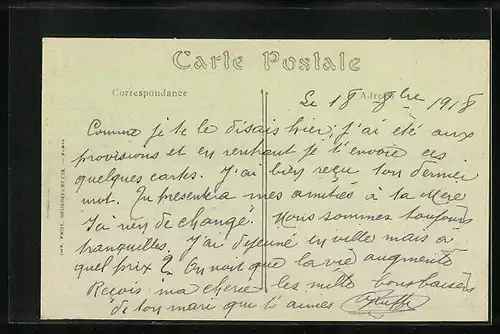 Carte Postale
Correspondance
Adresse
Le 18 9bre 1918
Comme je te le disais hier, j'ai été aux
provisions et en rentrant je t'envoie ces
quelques cartes. J'ai bien reçu ton dernier
mot. Tu presentera mes amitiés à ta Mère
J'ai rien de changé. Nous sommes toujours
tranquilles. J'ai dejeuné en ville mais à
quel prix ? On voit que la vie augmente
Reçois ma cherie les mille bons baisers
de ton mari que t'aimes